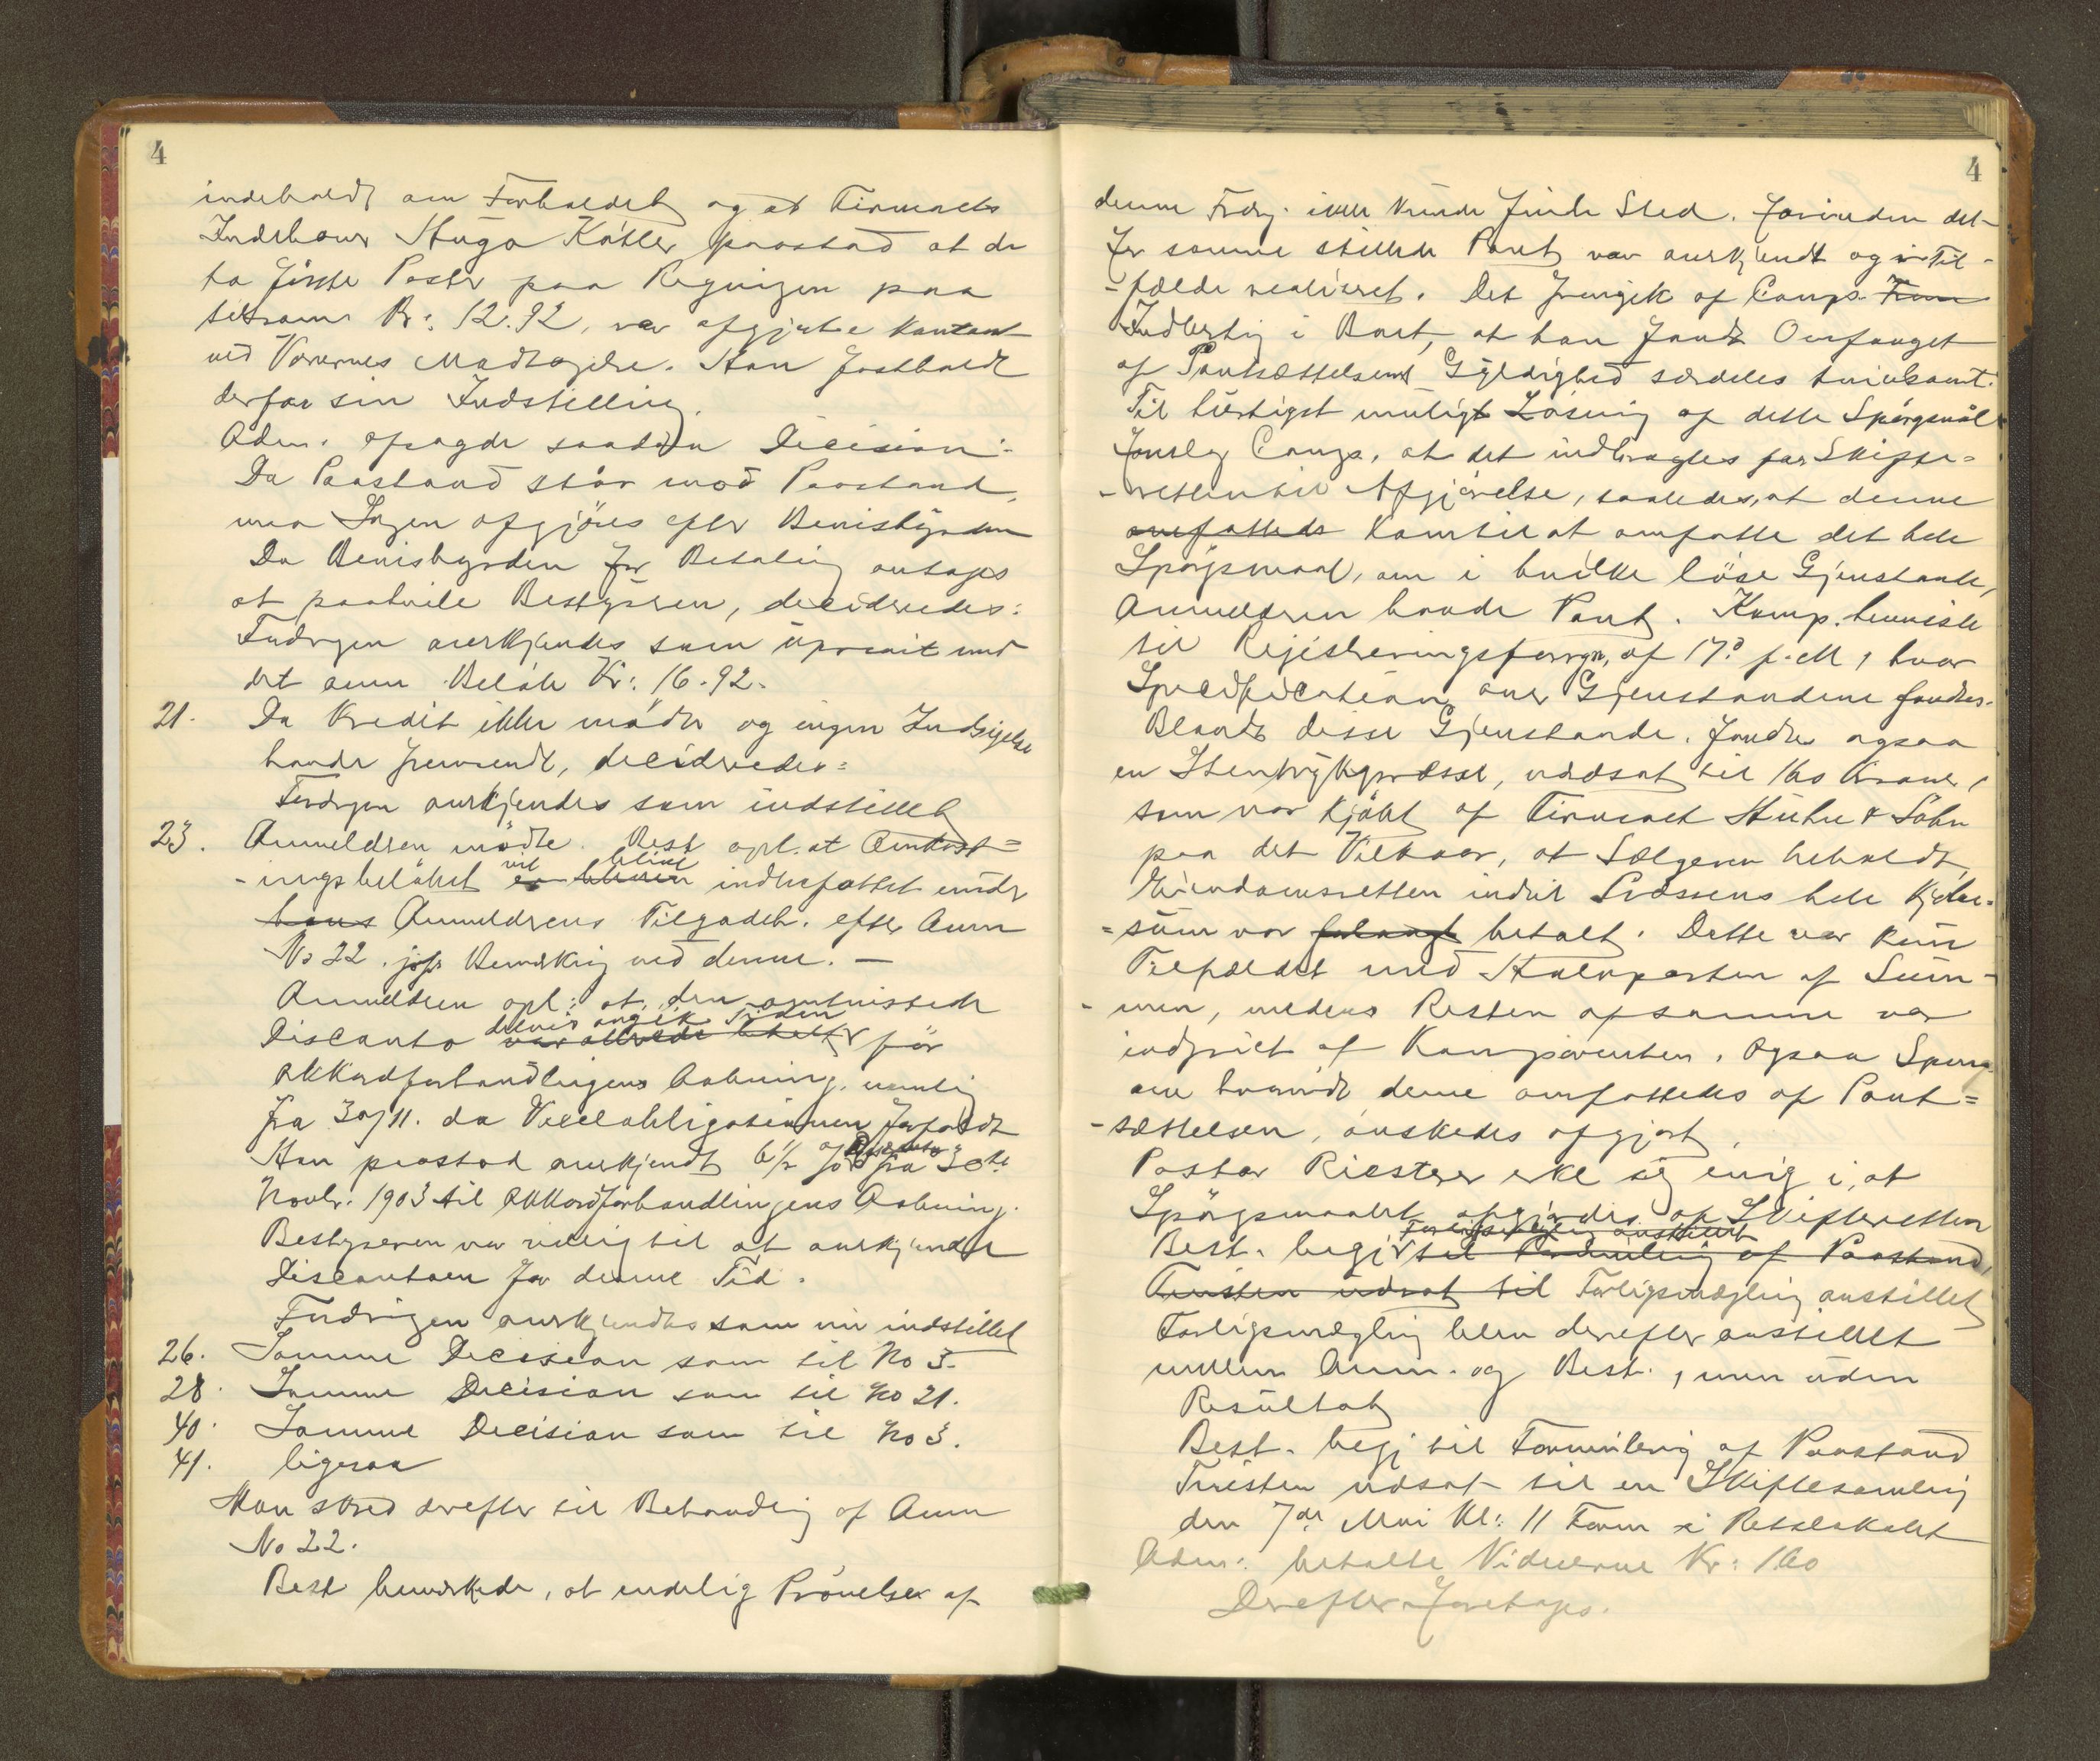 4
indeholdt om Forholdet og at Firmaets
Indehaver Hugo Kötler paastod at de
to første Poster paa Regningen paa
tilsam. Kr: 12.92, var afgjorte kontant
ved Varernes Modtagelse. Han fastholdt
derfor sin Indstilling.
Adm. afsagde saadan Decision:
Da Paastand står mod Paastand,
maa Sagen afgjöres efter Bevisbyrden
Da Bevisbyrden for Betaling antages
at paahvile Bestyreren, decideredes:
Fordringen anerkjendes som uprivit. med
det anm. Beløb Kr: 16.92.
21. Da Kredit. ikke mødte og ingen Indsigelse
havde fremsendt, decideredes:
Fordrgen anerkjendes som indstillet
23. Anmelderen mødte. Best. opl. at Omkost=
-ingsbeløbet vil er bleven blive indbefattet under
hans Anmelderens Tilgodeh. efter Anm
No 22. jvfr Bemærkning ved denne. —
Anmelderen opl: at den omtvistede
Disconto delvis angik Tiden var allerede betalt før
Akkordforhandlingens Aabning, nemlig
fra 30/11. da Vexelobligationen forfaldt
Han paastod anerkjendt 6½ % Disconto fra 30te
Novbr. 1903 til Akkordforhandlingens Aabning.
Bestyreren var villig til at anerkjende
Discontoen for denne Tid.
Fordringen anerkjendtes som nu indstillet
26. Samme Decision som til No 3.
28. Samme Decision som til No 21.
40. Samme Decision som til No 3.
41. ligesaa
Man skred derefter til Behandling af Anm
No 22.
Best bemærkede, at endelig Prövelse af
4
denne Fordr. ikke kunde finde Sted, forinden det
for samme stillede Pant var anerkjendt og i Til-
-fælde realiseret. Det fremgik af Comp. Frem
Indlertig i Bort, at han fandt Omfanget
af Pantsættelsens Gyldighed særdeles tvivlsomt.
Til hurtigst muligt Løsning af dette Spörgsmål
foreslog Comp., at det indbragtes for Skifte=
-retten til Afgjørelse, saaledes, at denne
omfattede kom til at omfatte det hele
Spørgsmaal, om i hvilke löse Gjenstande,
Anmelderen havde Pant. Komp. henviste
til Registreringsforretn, af 17. f. M, hvor
Specification over Gjenstandene fandtes.
Blandt disse Gjenstande, fandtes ogsaa
en Stentrykpresse, værdsat til 160 Kroner,
som var kjöbt af Firmaet Huhn & Söhn
paa det Vilkaar, at Sælgeren beholdt
Eiendomsretten indtil Pressens hele Kjøbe=
=sum var betalt. Dette var kun
Tilfældet med Halvparten af Sum-
-men, medens Resten af samme var
indfriet af Komparenten. Ogsaa Spörgsm.
om hvorvidt denne omfattedes af Pant=
-sættelsen, önskedes afgjort.
Pastor Riester erkl sig enig i, at
Spørgsmaalet afgjordes af Skifteretten
Best. begj Forligsmægling anstillet til Formulering af Paastand,
Tvisten udsat til Forligsmægling anstillet
Forligsmægling blev derefter anstillet
mellem Anm. og Best., men uden
Resultat
Best. begj til Formulering af Paastand
Tvisten udsat til en Skiftesamling
den 7de Mai Kl: 11 Form i Retslokalet
Adm: betalte Vidnerne Kr: 1.60
Derefter foretages.